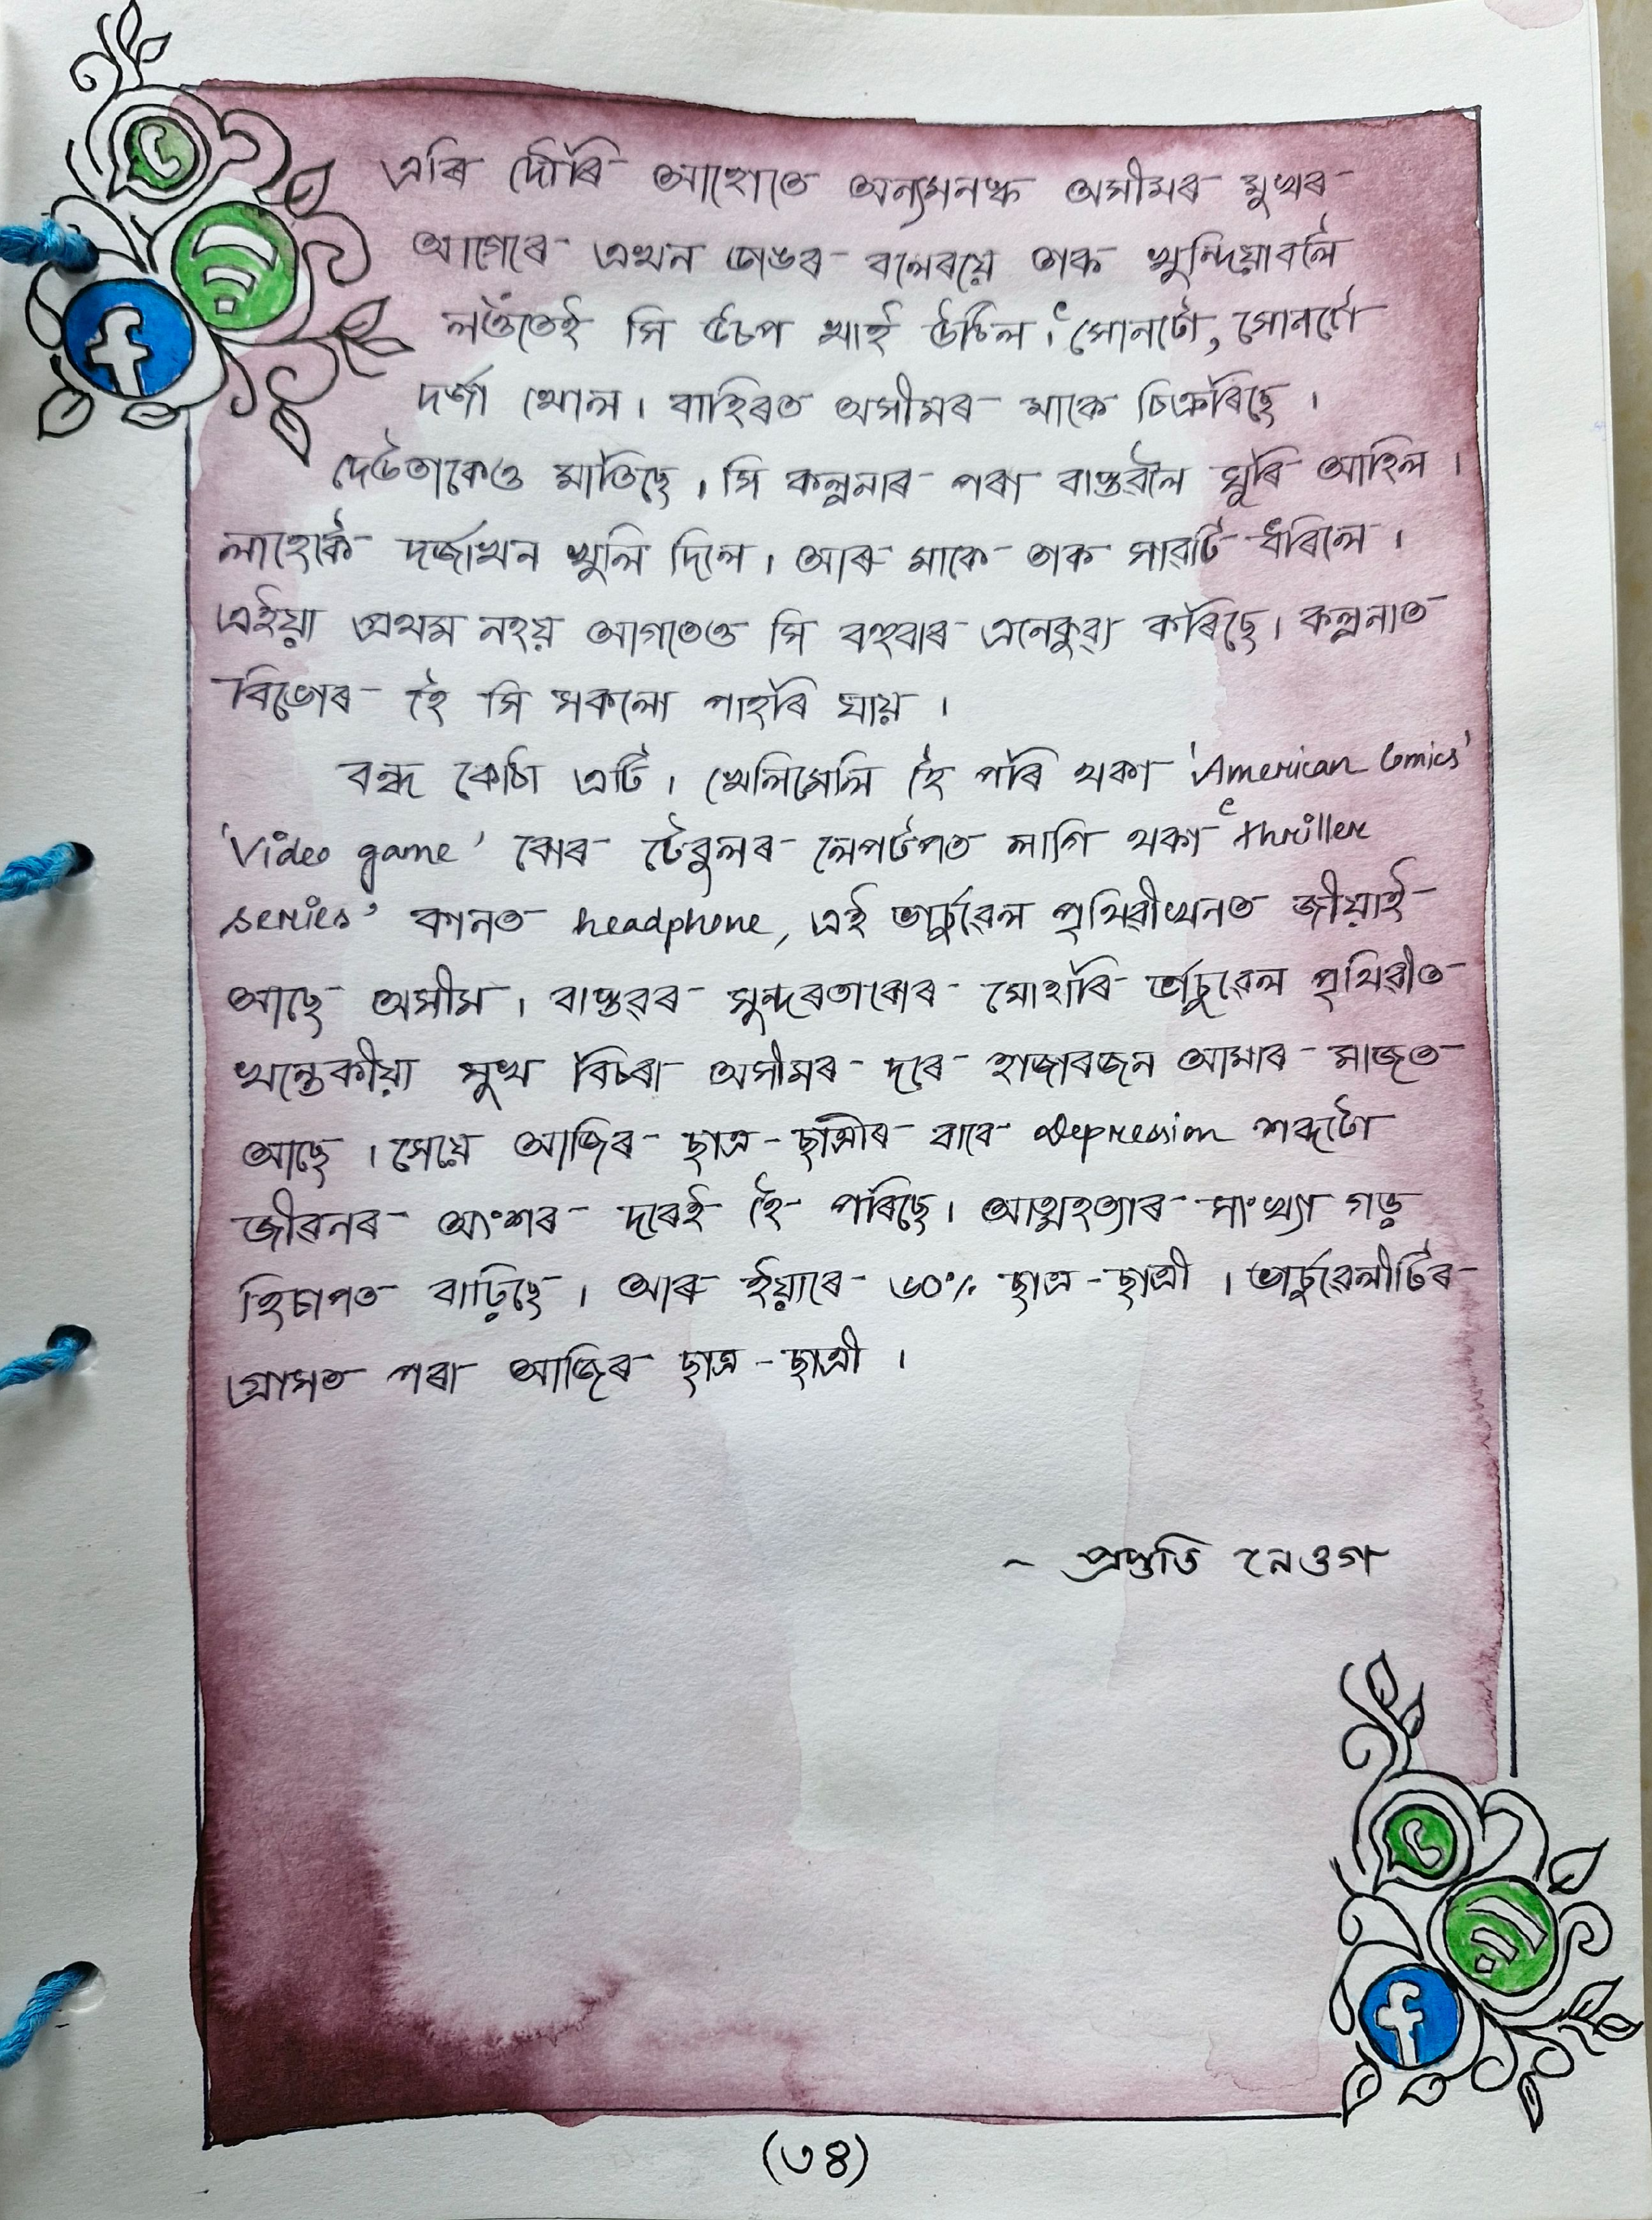 এৰি দৌৰি আহোতে অন্যমনস্ক অসীমৰ মুখৰ
আগেৰে এখন ডাঙৰ বলেৰয়ে তাক খুন্দিয়াবলৈ
লওঁতেই সি উচপ খাই উঠিল। 'সোনটো, সোনটো
দৰ্জা খোল। বাহিৰত অসীমৰ মাকে চিঞৰিছে।
দেউতাকেও মাতিছে। সি কল্পনাৰ পৰা বাস্তৱলৈ ঘূৰি আহিল।
লাহেকৈ দৰ্জাখন খুলি দিলে। আৰু মাকে তাক সাৱটি ধৰিলে।
এইয়া প্ৰথম নহয় আগতেও সি বহুবাৰ এনেকুৱা কৰিছে। কল্পনাত
বিভোৰ হৈ সি সকলো পাহৰি যায়।
বন্ধ কোঠা এটি। খেলিমেলি হৈ পৰি থকা 'American Comics'
'Video game' বোৰ টেবুলৰ লেপটপত লাগি থকা 'thriller
series' কানত headphone, এই ভাৰ্চুৱেল পৃথিৱীখনত জীয়াই
আছে অসীম। বাস্তৱৰ সুন্দৰতাবোৰ মোহাৰি ভাৰ্চুৱেল পৃথিৱীত
খন্তেকীয়া সুখ বিচৰা অসীমৰ দৰে হাজাৰজন আমাৰ মাজত
আছে। সেয়ে আজিৰ ছাত্ৰ-ছাত্ৰীৰ বাবে Depression শব্দটো
জীৱনৰ অংশৰ দৰেই হৈ পৰিছে। আত্মহত্যাৰ সাংখ্যা গড়
হিচাপত বাঢ়িছে। আৰু ইয়াৰে ৬০% ছাত্ৰ-ছাত্ৰী। ভাৰ্চুৱেলীটিৰ
গ্ৰাসত পৰা আজিৰ ছাত্ৰ-ছাত্ৰী।
~ প্ৰস্তুতি নেওগ
(৩৪)